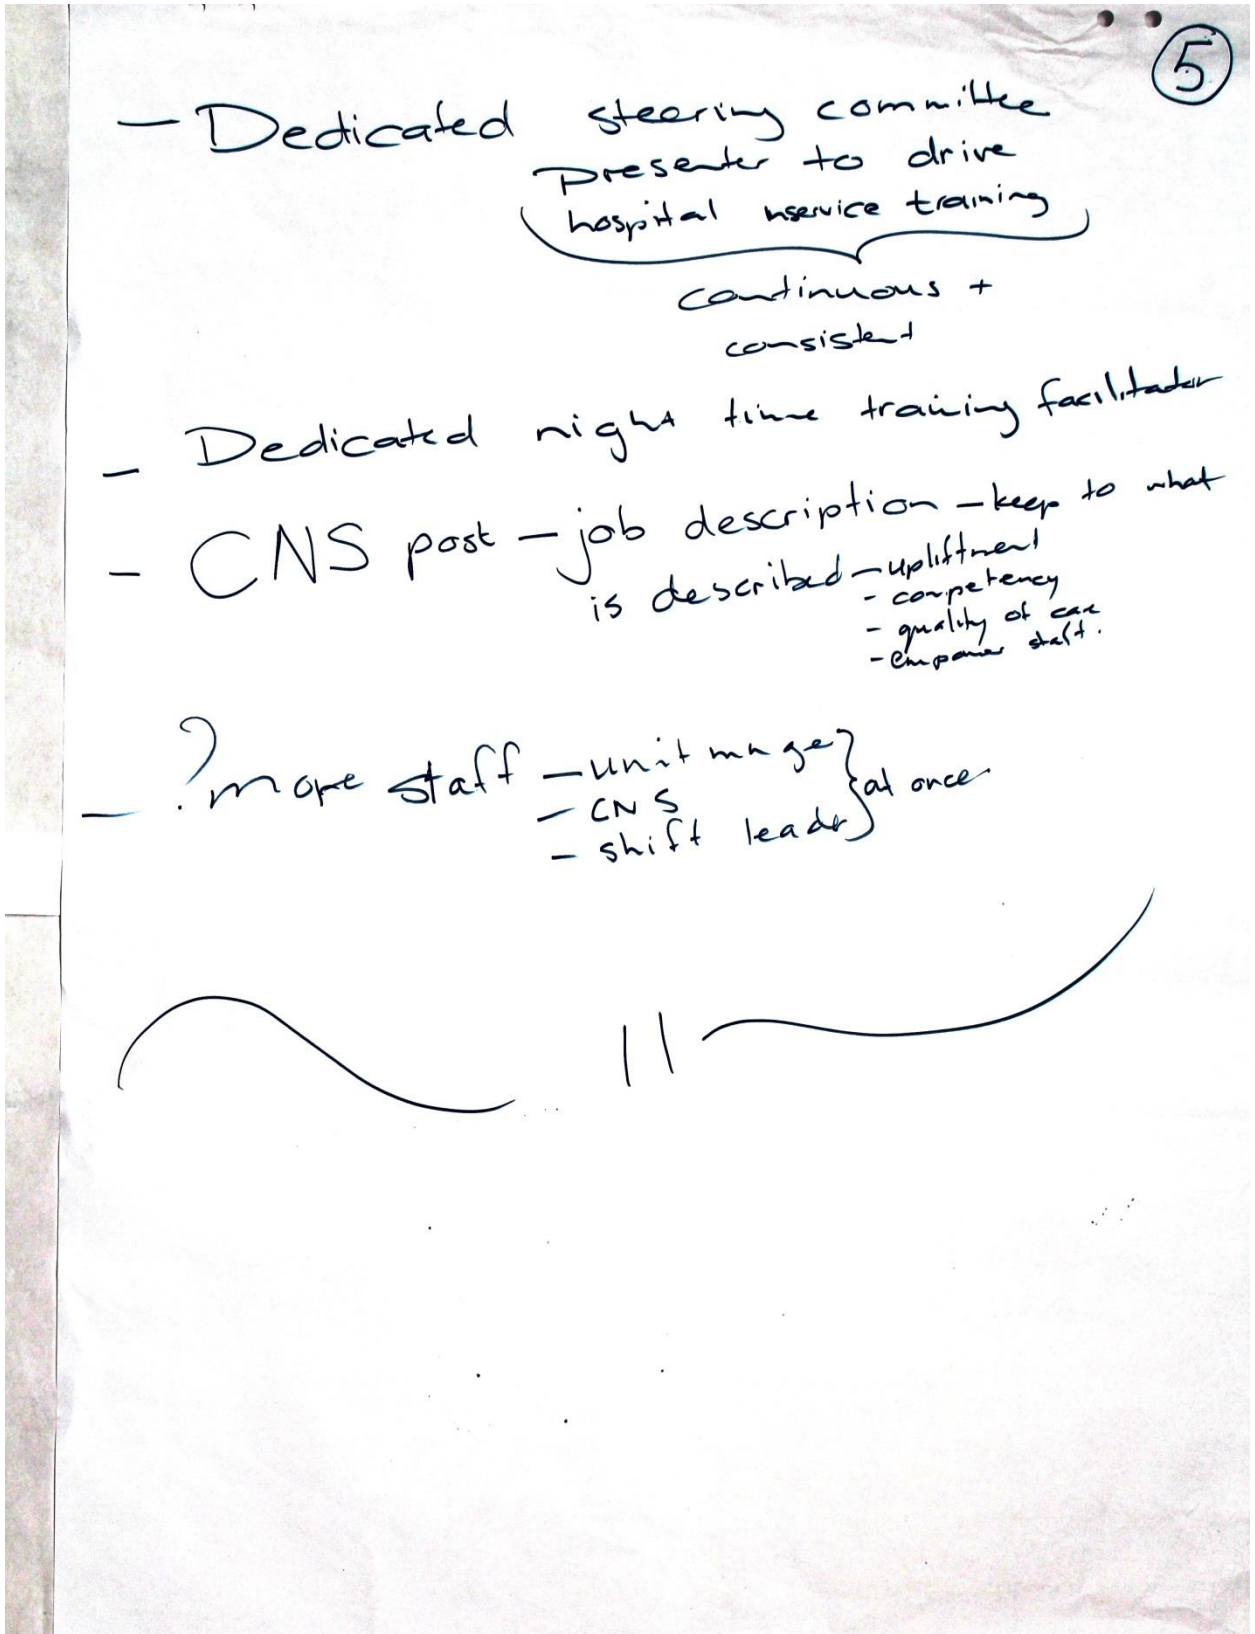 5
- Dedicated steering committee
presenter to drive
hospital inservice training
continuous +
consistent
- Dedicated night time training facilitator
- CNS post - job description - keep to what
is described - upliftment
- competency
- quality of care
- empower staff.
- ? more staff - unit mnger
- CNS
- shift leader
at once